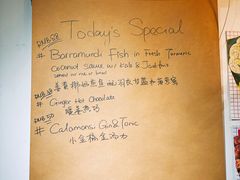 Today's Special
RMB 88
# Barramundi Fish in Fresh Turmeric
Coconut sauce w/ Kale & Jackfruit
served w/ rice or bread
姜黄椰奶煮鱼配羽衣甘蓝和菠萝蜜
# Ginger Hot Chocolate
暖姜热巧
RMB 50
# Calamansi Gin&Tonic
小金桔金汤力